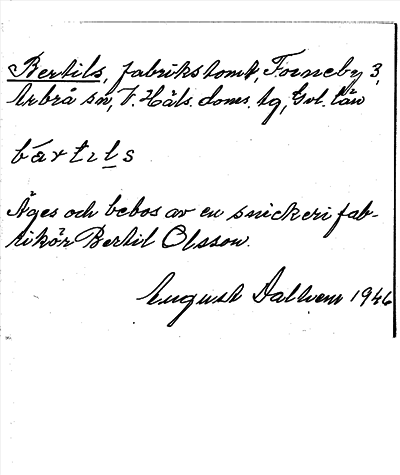 Bertils, fabrikstomt, Forneby 3,
Arbrå sn, V. Häls. doms. tg, Gvl. län
bǽrtıls
Äges och bebos av en snickerifab-
rikör Bertil Olsson.
August Dallven 1946